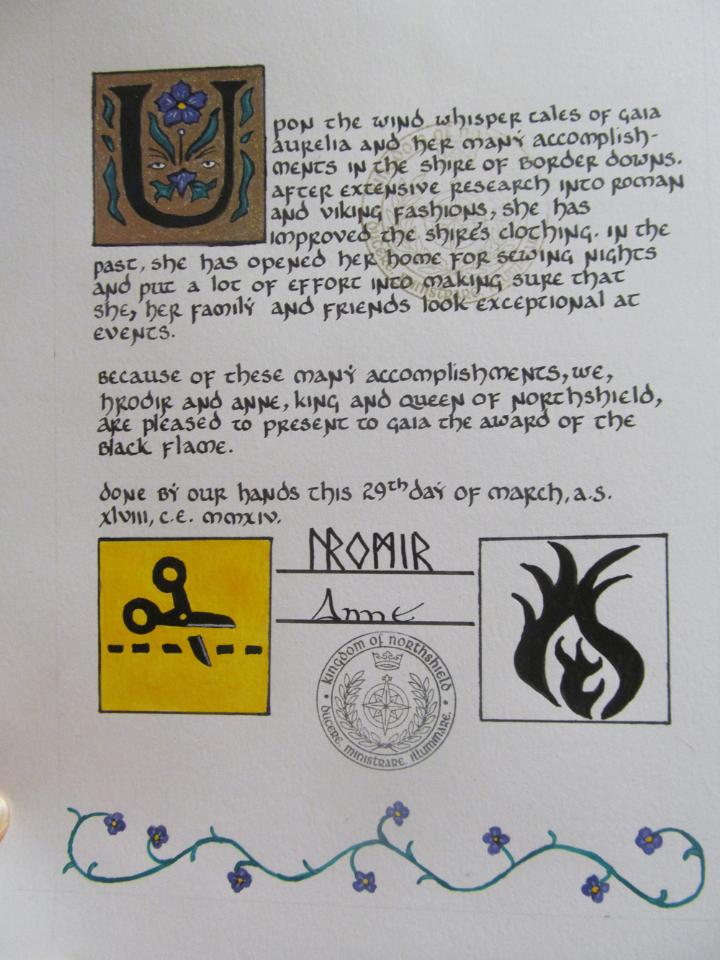 Upon the wind whisper tales of Gaia
Aurelia and her many accomplish-
ments in the shire of Border Downs.
After extensive research into Roman
and Viking fashions, she has
improved the shire's clothing. In the
past, she has opened her home for sewing nights
and put a lot of effort into making sure that
she, her family and friends look exceptional at
events.
Because of these many accomplishments, we,
Hrodir and Anne, King and Queen of Northshield,
are pleased to present to Gaia the award of the
Black Flame.
Done by our hands this 29th day of March, A.S.
XLVIII, C.E. MMXIV.
Anne
Kingdom of Northshield
Ducere, Ministrare, Illuminare.